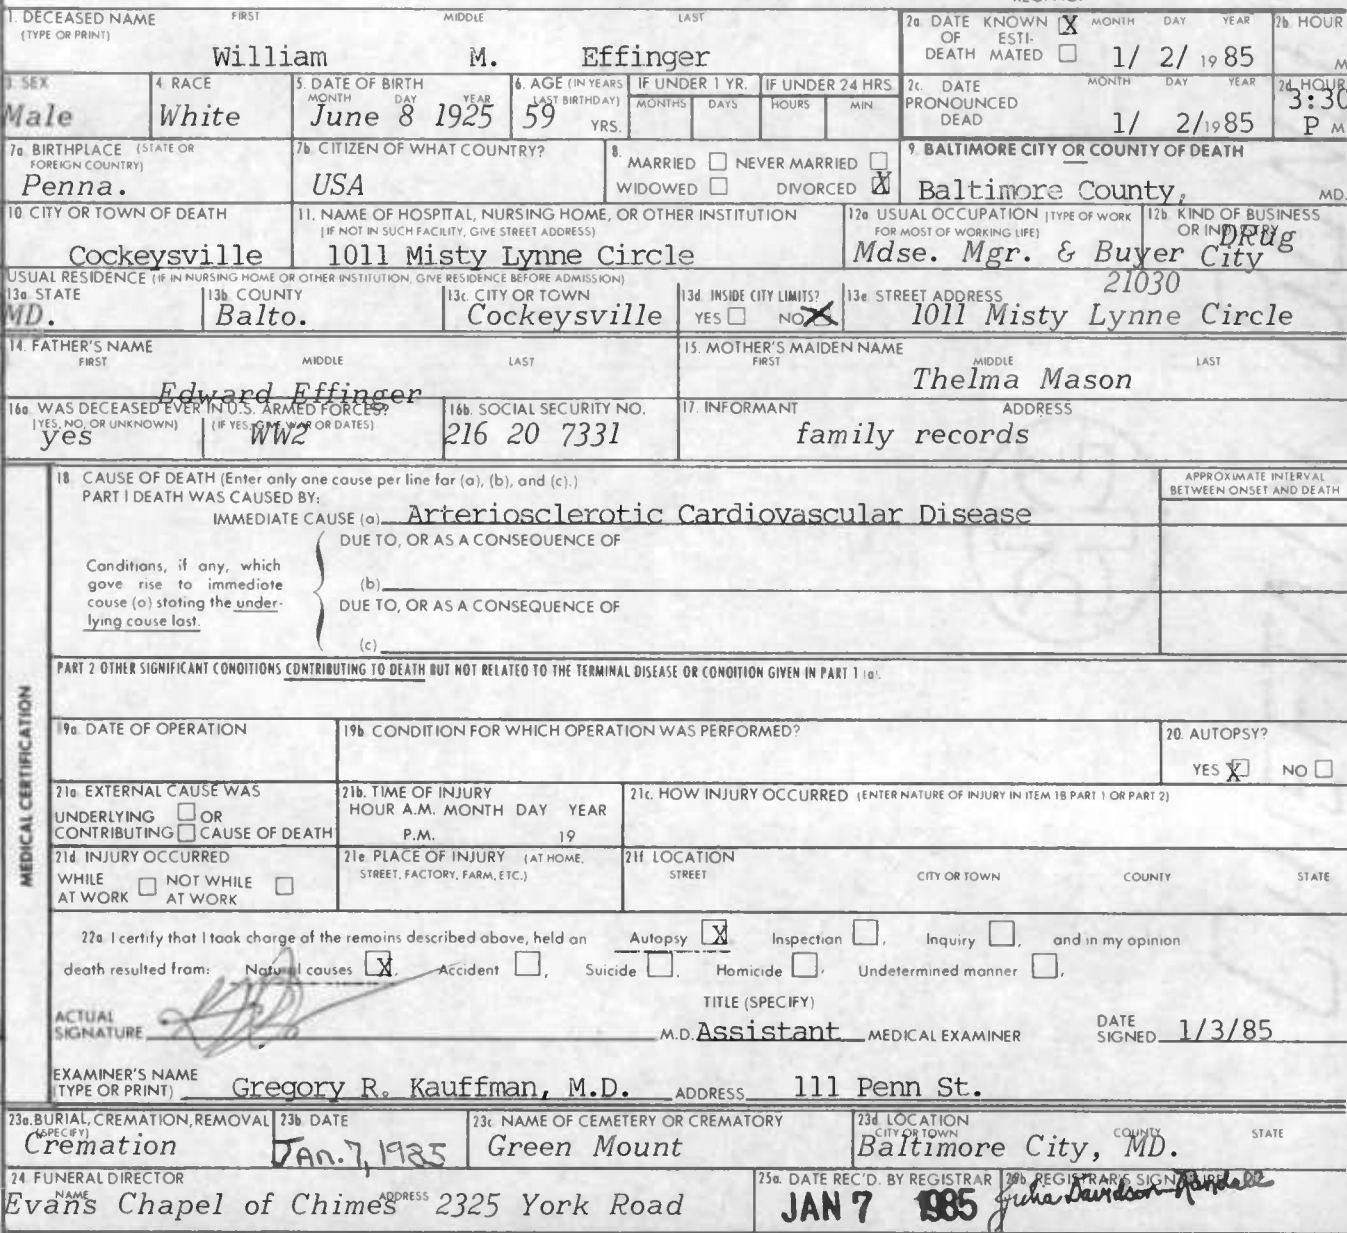 1. DECEASED NAME (TYPE OR PRINT) FIRST MIDDLE LAST
William M. Effinger
2a DATE OF DEATH KNOWN X ESTIMATED MONTH DAY YEAR 1/ 2/ 1985
2b HOUR M
3. SEX Male
4 RACE White
5. DATE OF BIRTH MONTH DAY YEAR June 8 1925
6. AGE (IN YEARS LAST BIRTHDAY) 59 YRS.
IF UNDER 1 YR. MONTHS DAYS
IF UNDER 24 HRS HOURS MIN
2c. DATE PRONOUNCED DEAD MONTH DAY YEAR 1/ 2/1985
2d HOUR 3:30 P M
7a BIRTHPLACE (STATE OR FOREIGN COUNTRY) Penna.
7b. CITIZEN OF WHAT COUNTRY? USA
8. MARRIED NEVER MARRIED WIDOWED DIVORCED X
9. BALTIMORE CITY OR COUNTY OF DEATH Baltimore County, MD.
10. CITY OR TOWN OF DEATH Cockeysville
11. NAME OF HOSPITAL, NURSING HOME, OR OTHER INSTITUTION (IF NOT IN SUCH FACILITY, GIVE STREET ADDRESS) 1011 Misty Lynne Circle
12a USUAL OCCUPATION (TYPE OF WORK FOR MOST OF WORKING LIFE) Mdse. Mgr. & Buyer
12b. KIND OF BUSINESS OR INDUSTRY DRug City
USUAL RESIDENCE (IF IN NURSING HOME OR OTHER INSTITUTION, GIVE RESIDENCE BEFORE ADMISSION)
13a STATE MD.
13b COUNTY Balto.
13c. CITY OR TOWN Cockeysville
13d INSIDE CITY LIMITS? YES NO X
13e STREET ADDRESS 21030 1011 Misty Lynne Circle
14. FATHER'S NAME FIRST MIDDLE LAST Edward Effinger
15. MOTHER'S MAIDEN NAME FIRST MIDDLE LAST Thelma Mason
16a WAS DECEASED EVER IN U.S. ARMED FORCES? (YES, NO, OR UNKNOWN) yes (IF YES, GIVE WAR OR DATES) WW2
16b. SOCIAL SECURITY NO. 216 20 7331
17. INFORMANT ADDRESS family records
MEDICAL CERTIFICATION
18 CAUSE OF DEATH (Enter only one cause per line for (a), (b), and (c).)
PART I DEATH WAS CAUSED BY:
IMMEDIATE CAUSE (a) Arteriosclerotic Cardiovascular Disease
APPROXIMATE INTERVAL BETWEEN ONSET AND DEATH
DUE TO, OR AS A CONSEQUENCE OF
Conditions, if any, which gave rise to immediate cause (a) stating the underlying cause last.
(b)
DUE TO, OR AS A CONSEQUENCE OF
(c)
PART 2 OTHER SIGNIFICANT CONDITIONS CONTRIBUTING TO DEATH BUT NOT RELATED TO THE TERMINAL DISEASE OR CONDITION GIVEN IN PART 1 (a).
19a DATE OF OPERATION
19b CONDITION FOR WHICH OPERATION WAS PERFORMED?
20. AUTOPSY? YES X NO
21a EXTERNAL CAUSE WAS UNDERLYING OR CONTRIBUTING CAUSE OF DEATH
21b. TIME OF INJURY HOUR A.M. MONTH DAY YEAR P.M. 19
21c. HOW INJURY OCCURRED (ENTER NATURE OF INJURY IN ITEM 18 PART 1 OR PART 2)
21d INJURY OCCURRED WHILE AT WORK NOT WHILE AT WORK
21e PLACE OF INJURY (AT HOME, STREET, FACTORY, FARM, ETC.)
21f LOCATION STREET CITY OR TOWN COUNTY STATE
22a I certify that I took charge of the remains described above, held an Autopsy X Inspection , Inquiry , and in my opinion
death resulted from: Natural causes X, Accident , Suicide , Homicide , Undetermined manner ,
ACTUAL SIGNATURE M.D. TITLE (SPECIFY) Assistant MEDICAL EXAMINER DATE SIGNED 1/3/85
EXAMINER'S NAME (TYPE OR PRINT) Gregory R. Kauffman, M.D. ADDRESS 111 Penn St.
23a. BURIAL, CREMATION, REMOVAL (SPECIFY) Cremation
23b. DATE JAn. 7, 1985
23c NAME OF CEMETERY OR CREMATORY Green Mount
23d LOCATION CITY OR TOWN COUNTY STATE Baltimore City, MD.
24 FUNERAL DIRECTOR NAME ADDRESS Evans Chapel of Chimes 2325 York Road
25a. DATE REC'D. BY REGISTRAR JAN 7 1985
REGISTRAR'S SIGNATURE Julia Davidson-Randall